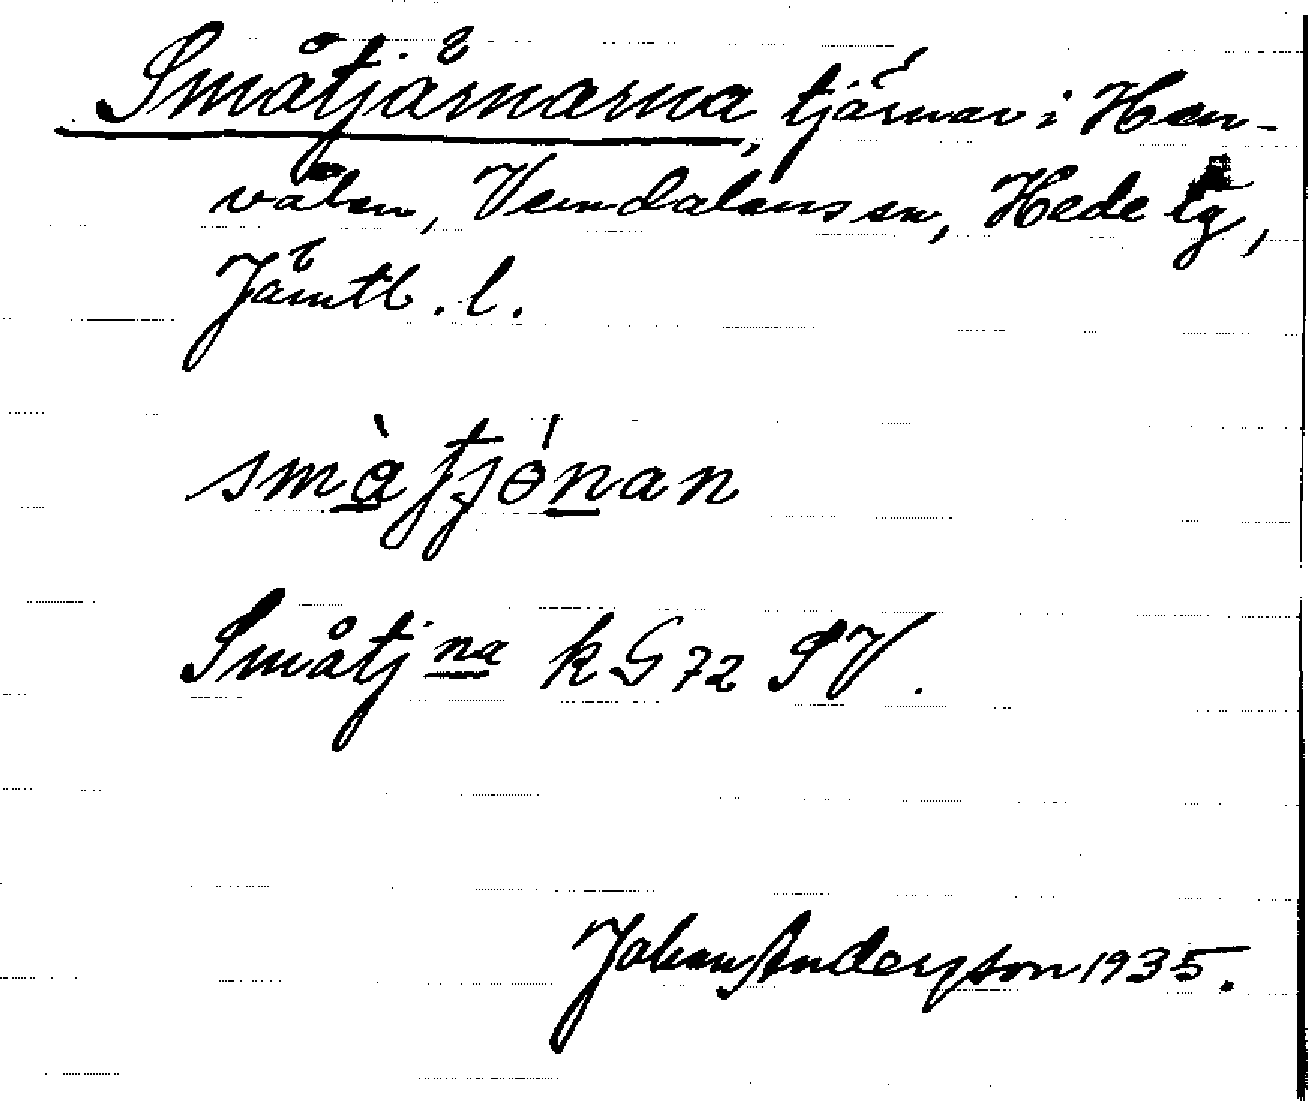 Småtjärnarna, tjärnar i Hen-
vålen, Vemdalens sn, Hede tg,
Jämtl. l.
småtjɵ́nan
Småtjna k G 72 SV.
Johan Anderson 1935.